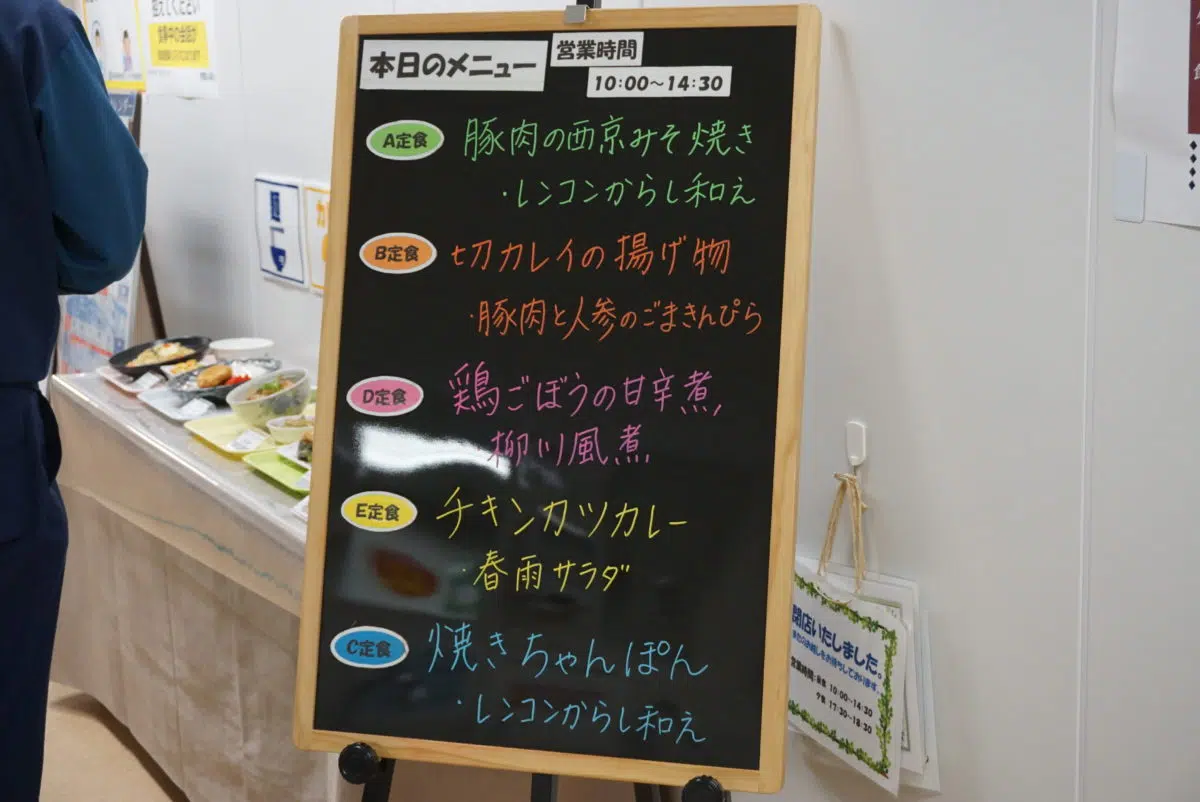 本日のメニュー
営業時間
10:00～14:30
A定食
豚肉の西京みそ焼き
・レンコンからし和え
B定食
切カレイの揚げ物
・豚肉と人参のごまきんぴら
D定食
鶏ごぼうの甘辛煮
・柳川風煮
E定食
チキンカツカレー
・春雨サラダ
C定食
焼きちゃんぽん
・レンコンからし和え
閉店いたしました。
またのお越しをお待ちしております。
営業時間:昼食 10:00～14:30
夕食 17:30～18:30
控えてください
食事中の会話が
麺